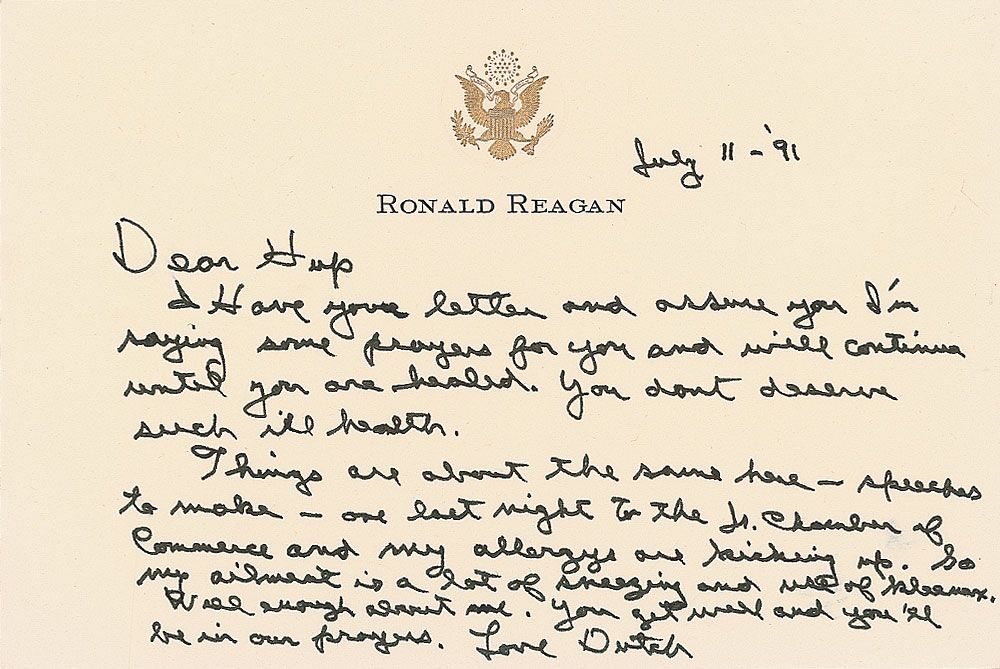 July 11-'91
RONALD REAGAN
Dear Hup
I Have your letter and assure you I'm
saying some prayers for you and will continue
until you are healed. You dont deserve
such ill health.
Things are about the same here – speeches
to make – one last night to the Jr. Chamber of
Commerce and my allergys are kicking up. So
my ailment is a lot of sneezing and use of kleenex.
Well enough about me. You get well and you'll
be in our prayers. Love Dutch